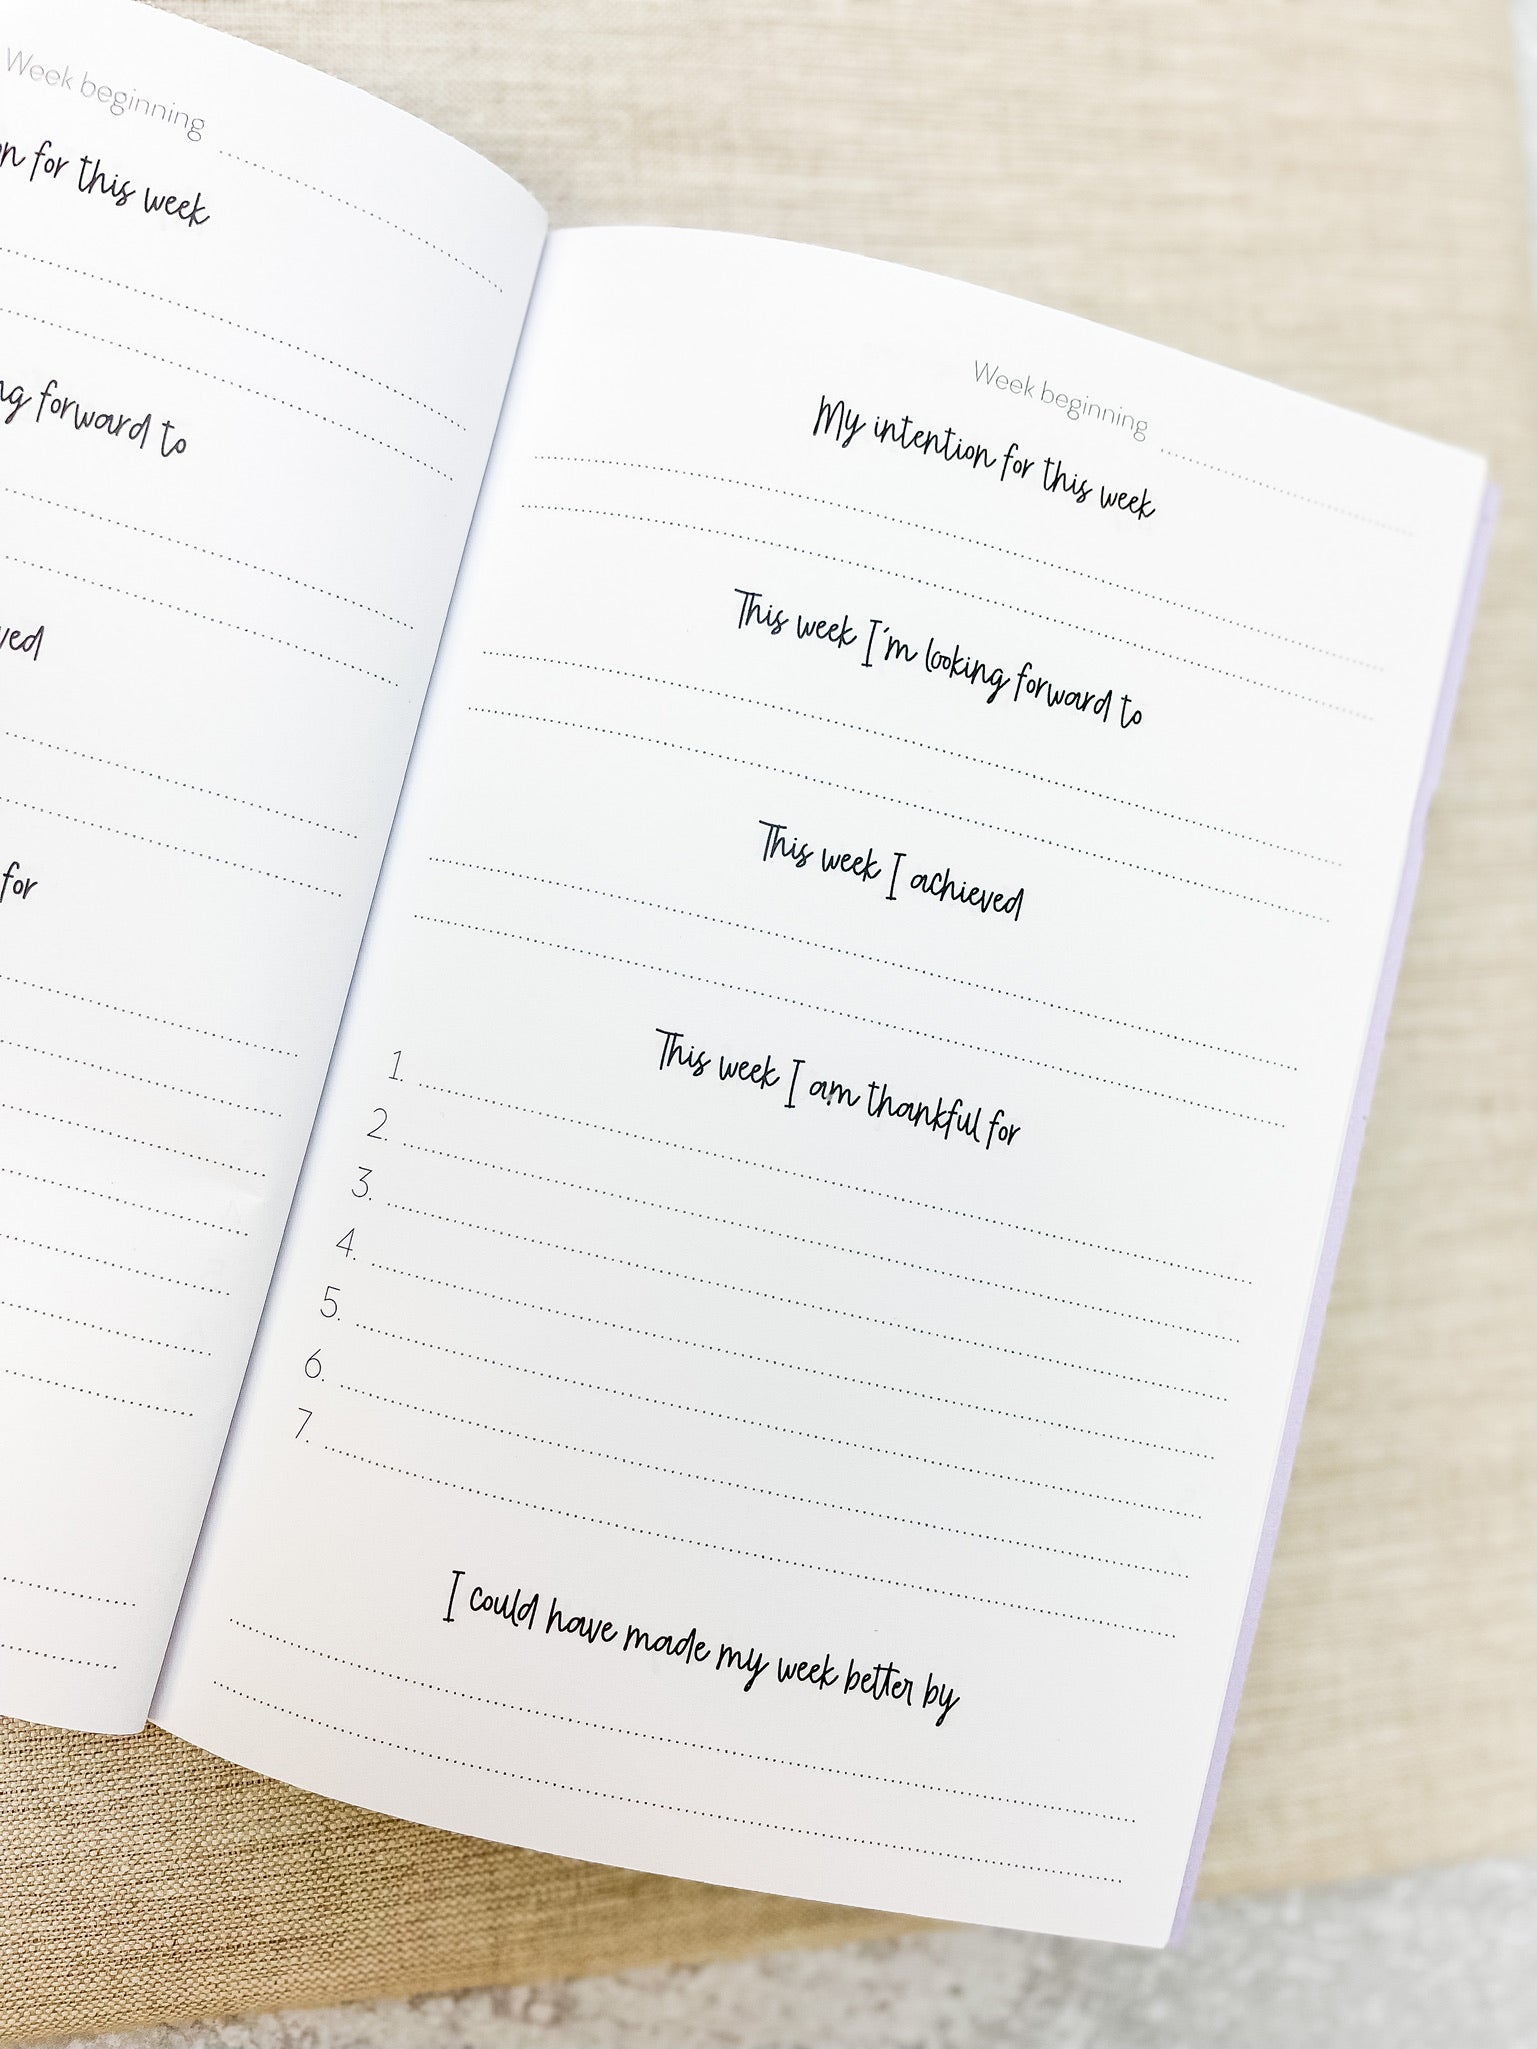 Week beginning
for this week
forward to
for
Week beginning
My intention for this week
This week I'm looking forward to
This week I achieved
This week I am thankful for
1.
2.
3.
4.
5.
6.
7.
I could have made my week better by